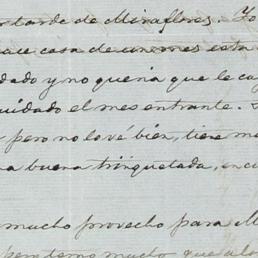 tarde de Miraflores. Yo
hace cosa de un mes esta
dado y no queria que le ca
uidado el mes entrante.
pero no lo vé bien, tiene m
a buena trinquetada, en c
mucho provecho para M
pero temo mucho que a lo